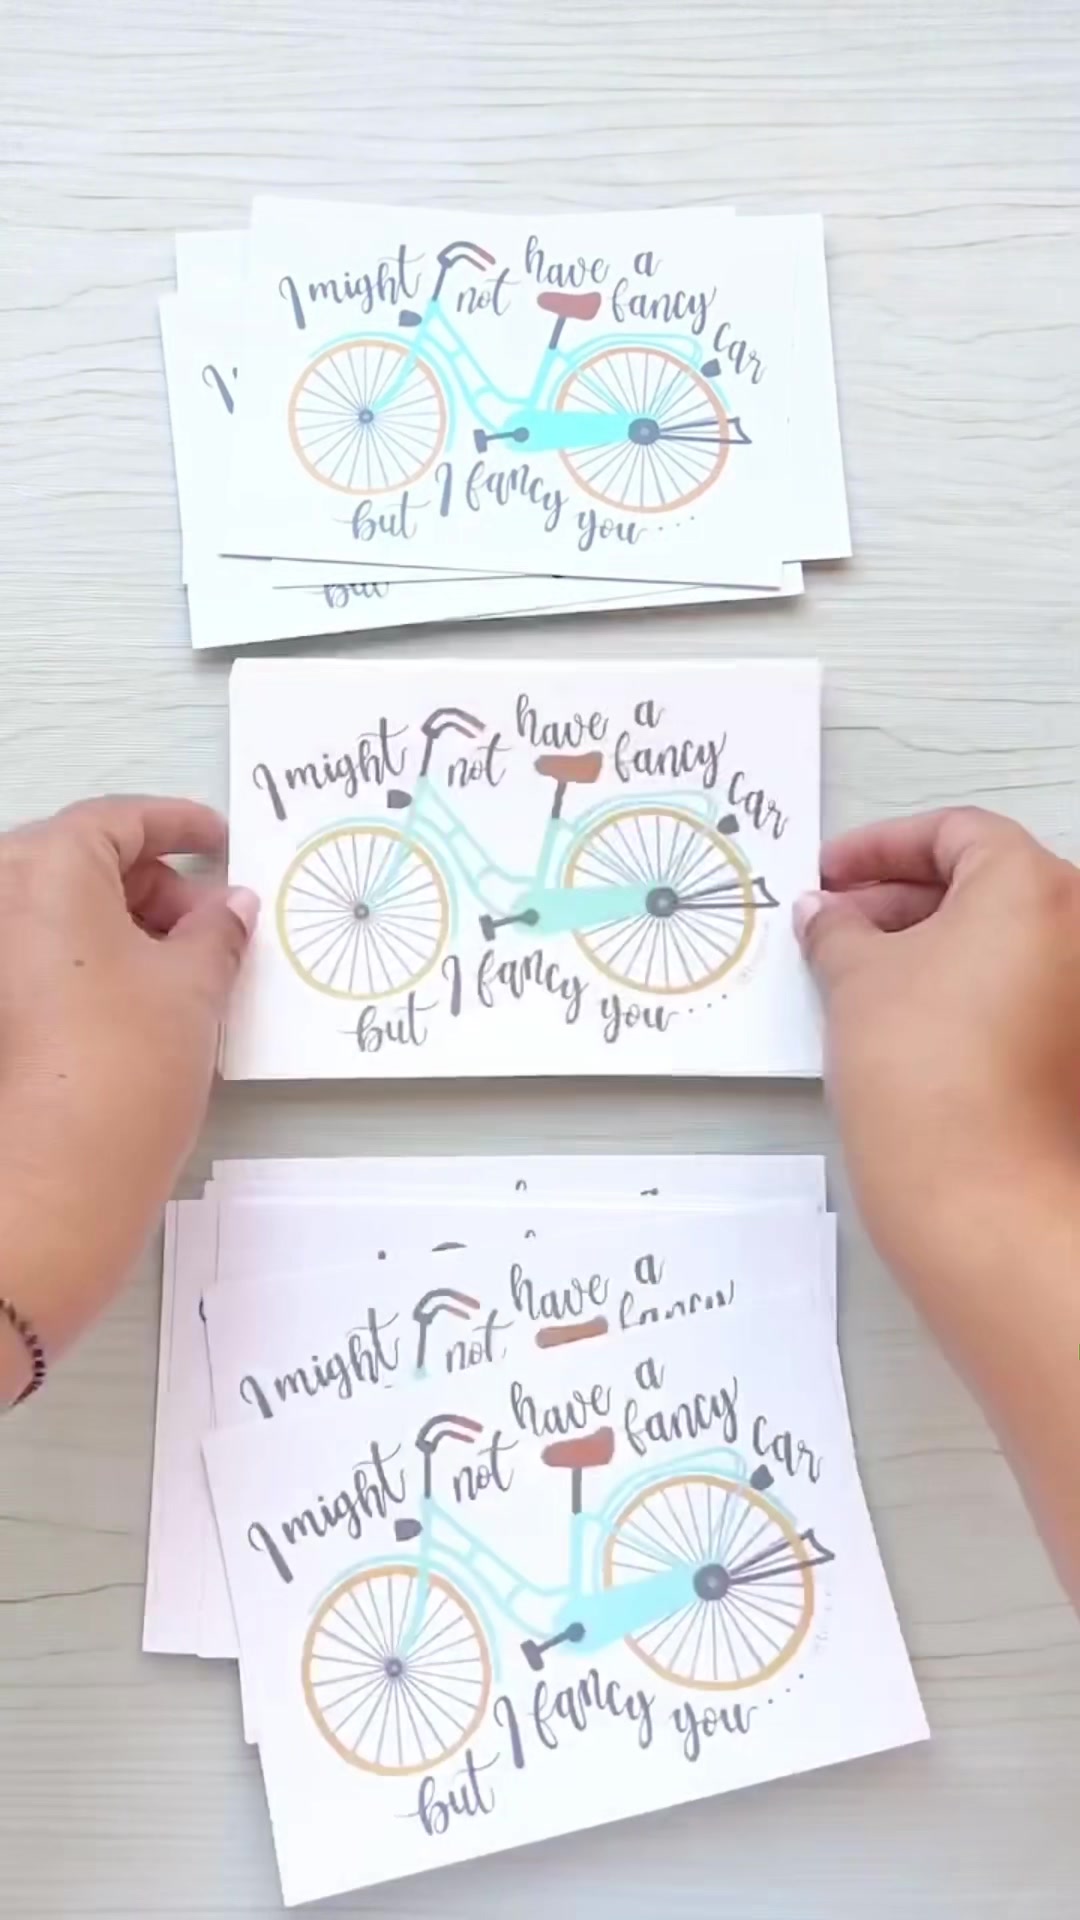 I might not have a
fancy
car
but I fancy you....
but
I might not have a
fancy
car
but I fancy you....
I might not have a
fancy
I might not have a
fancy
car
but I fancy you....